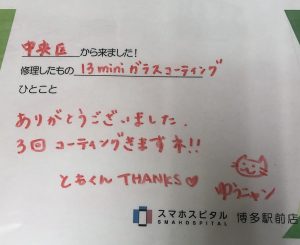 中央区から来ました!
修理したもの 13miniガラスコーティング
ひとこと
ありがとうございました.
3回コーティングきますネ!!
ともくん THANKS♡
ゆうニャン
スマホスピタル 博多駅前店
SMAHOSPITAL